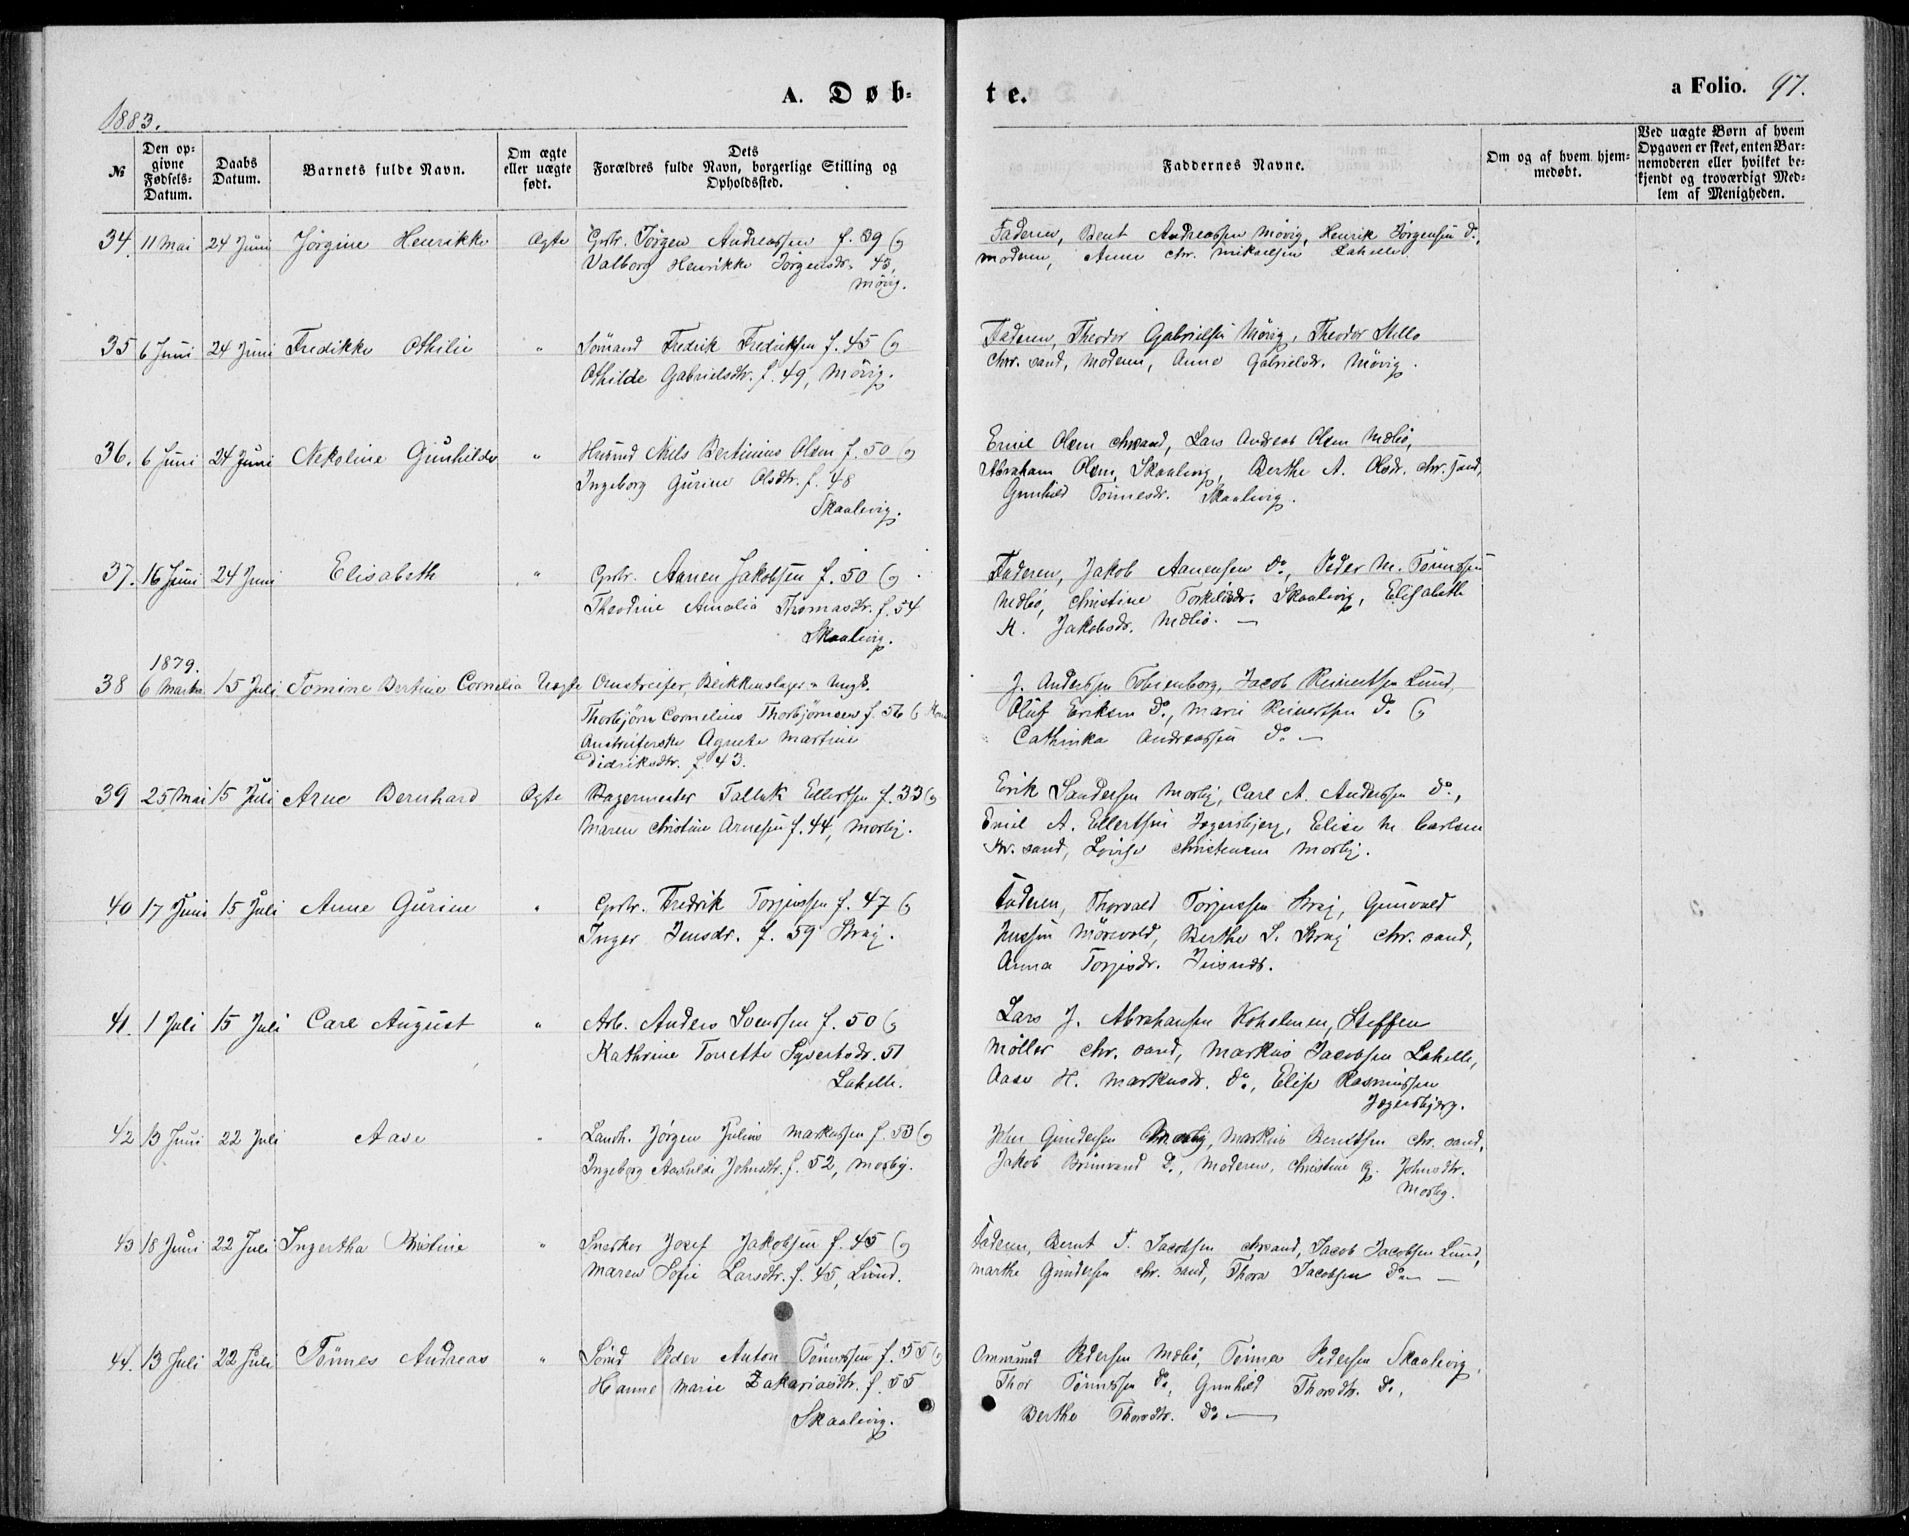 1883.
A. Døb-
te.
a Folio. 97.
№
Den op-
givne
Fødsels-
Datum.
Daabs
Datum.
Barnets fulde Navn.
Om ægte
eller uægte
født.
Dets
Forældres fulde Navn, borgerlige Stilling og
Opholdssted.
Faddernes Navne.
Om og af hvem hjem-
medøbt.
Ved uægte Børn af hvem
Opgaven er skeet, enten Bar-
nemoderen eller hvilket be-
kjendt og troværdigt Med-
lem af Menigheden.
34. 11 Mai 24 Juni Jørgine Henrikke Ægte Grbr. Jørgen Andreassen f. 39 og
Valborg Henrikke Jørgensdr. 43,
Møvig.
Faderen, Bent Andreassen Møvig, Henrik Jørgensen do,
Moderen, Anne Chr. Mikaelsen Lahelle
35 6 Juni 24 Juni Fredikke Othilie " Sømand Fredrik Fredriksen f. 45 og
Othilde Gabrielsdtr. f. 49, Møvig.
Faderen, Theodor Gabrielsen Møvig, Theodor
Chr. sand, Moderen, Anne Gabrielsdr. Møvig.
36. 6 Juni 24 Juni Nekoline Gunhilde " Husmd Niels Bertinius Olsen f. 50 og
Ingeborg Gurine Olsdtr. f. 48
Skaalevig.
Emil Olsen Chrsand, Lars Andreas Olsen Mebø,
Abraham Olsen, Skaalevig, Berthe A. Olsdr. Chr. sand,
Gunhild Tønnesdr. Skaalevig.
37. 16 Juni 24 Juni Elisabeth " Grbr. Aanen Jakobsen f. 50 og
Theodine Amalia Thomasdtr. f. 54
Skaalevig.
Faderen, Jakob Aanensen do, Peder M. Tønnessen
Mebø, Christine Torkildsdr. Skaalevig, Elisabeth
K. Jakobsdr. Mebø. —
1879.
38 6 Marts 15 Juli Tomine Bertine Cornelia Uægte Omstreifer, Blikkenslager Ungk.
Thorbjørn Cornelius Thorbjørnsen f. 56 og
Omstreiferske Agnete Martine
Didriksdtr. f. 43.
J. Anderssen Tobienborg, Jacob Reinertsen Lund,
Oluf Eriksen do, Marie Reinertsen do og
Cathinka Andreassen do —
39 25 Mai 15 Juli Arne Bernhard Ægte Bagermester Tallak Ellertsen f. 33 og
Maren Christine Arnesen f. 44, Mosby.
Erik Sandersen Mosby, Carl A. Anderssen do,
Emil A. Ellertsen Jegersbjerg, Elise M. Carlsen
Chr. sand, Lovise Christensen Mosby.
40 17 Juni 15 Juli Anne Gurine " Grbr. Fredrik Torjussen f. 47 og
Inger Jensdr. f. 59 Straj.
Faderen, Thorvald Torjussen Straj, Gunvald
Berthe S. Straj Chr. sand,
Anna Torjusdr.
41 1 Juli 15 Juli Carl August " Arb. Anders Svenssen f. 50 og
Kathrine Tonette Syvertsdr. 51
Lahelle.
Lars J. Abrahamsen Koholmen, Steffen
Møller Chr. sand, Markus Jacobsen Lahelle,
Aase H. Markusdr. do, Elise Rasmussen
Jegersbjerg.
42 13 Juni 22 Juli Aase " Landh. Jørgen Julius Markussen f. 53 og
Ingeborg Aashilde Johnsdtr. f. 52, Mosby.
John Gundersen Mosby, Markus Berntsen Chr. sand,
Jakob do, Moderen, Christine G. Johnsdtr.
Mosby.
43 18 Juni 22 Juli Ingertha Kristine " Snedker Josef Jakobsen f. 45 og
Maren Sofie Larsdtr. f. 45, Lund.
Faderen, Bernt T. Jacobsen Chrsand, Jacob Jacobsen Lund,
Marthe Gundersen Chr. sand, Thora Jacobsen do —
44. 13 Juli 22 Juli Tønnes Andreas " Sømd Peder Anton Tønnessen f. 55 og
Hanne Marie Zakariasdtr. f. 55
Skaalevig.
Ommund Pedersen Mebø, Tønnes Pedersen Skaalevig,
Thor Tønnessen do, Gunhild Thorsdtr. do,
Berthe Thorsdtr. do —